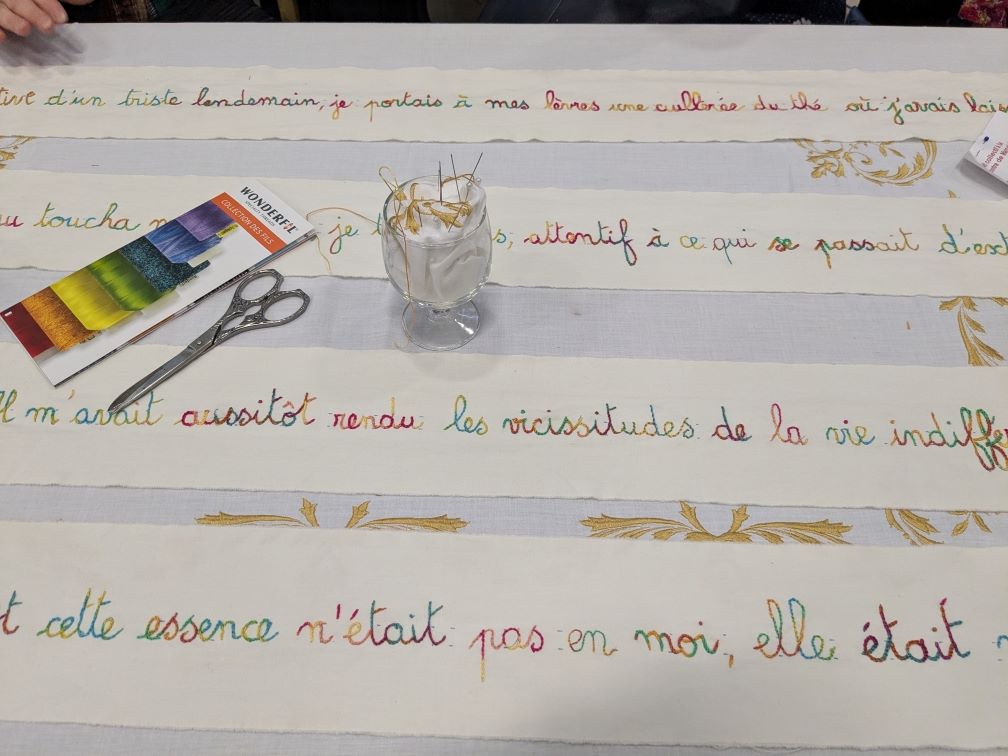 d'un triste lendemain, je portais à mes lèvres une cullerée du thé où j'avais
toucha
je
attentif à ce qui se passait
WONDERFIL
COLLECTION DES FILS
Il m'avait aussitôt rendu les vicissitudes de la vie
cette essence n'était pas en moi, elle était